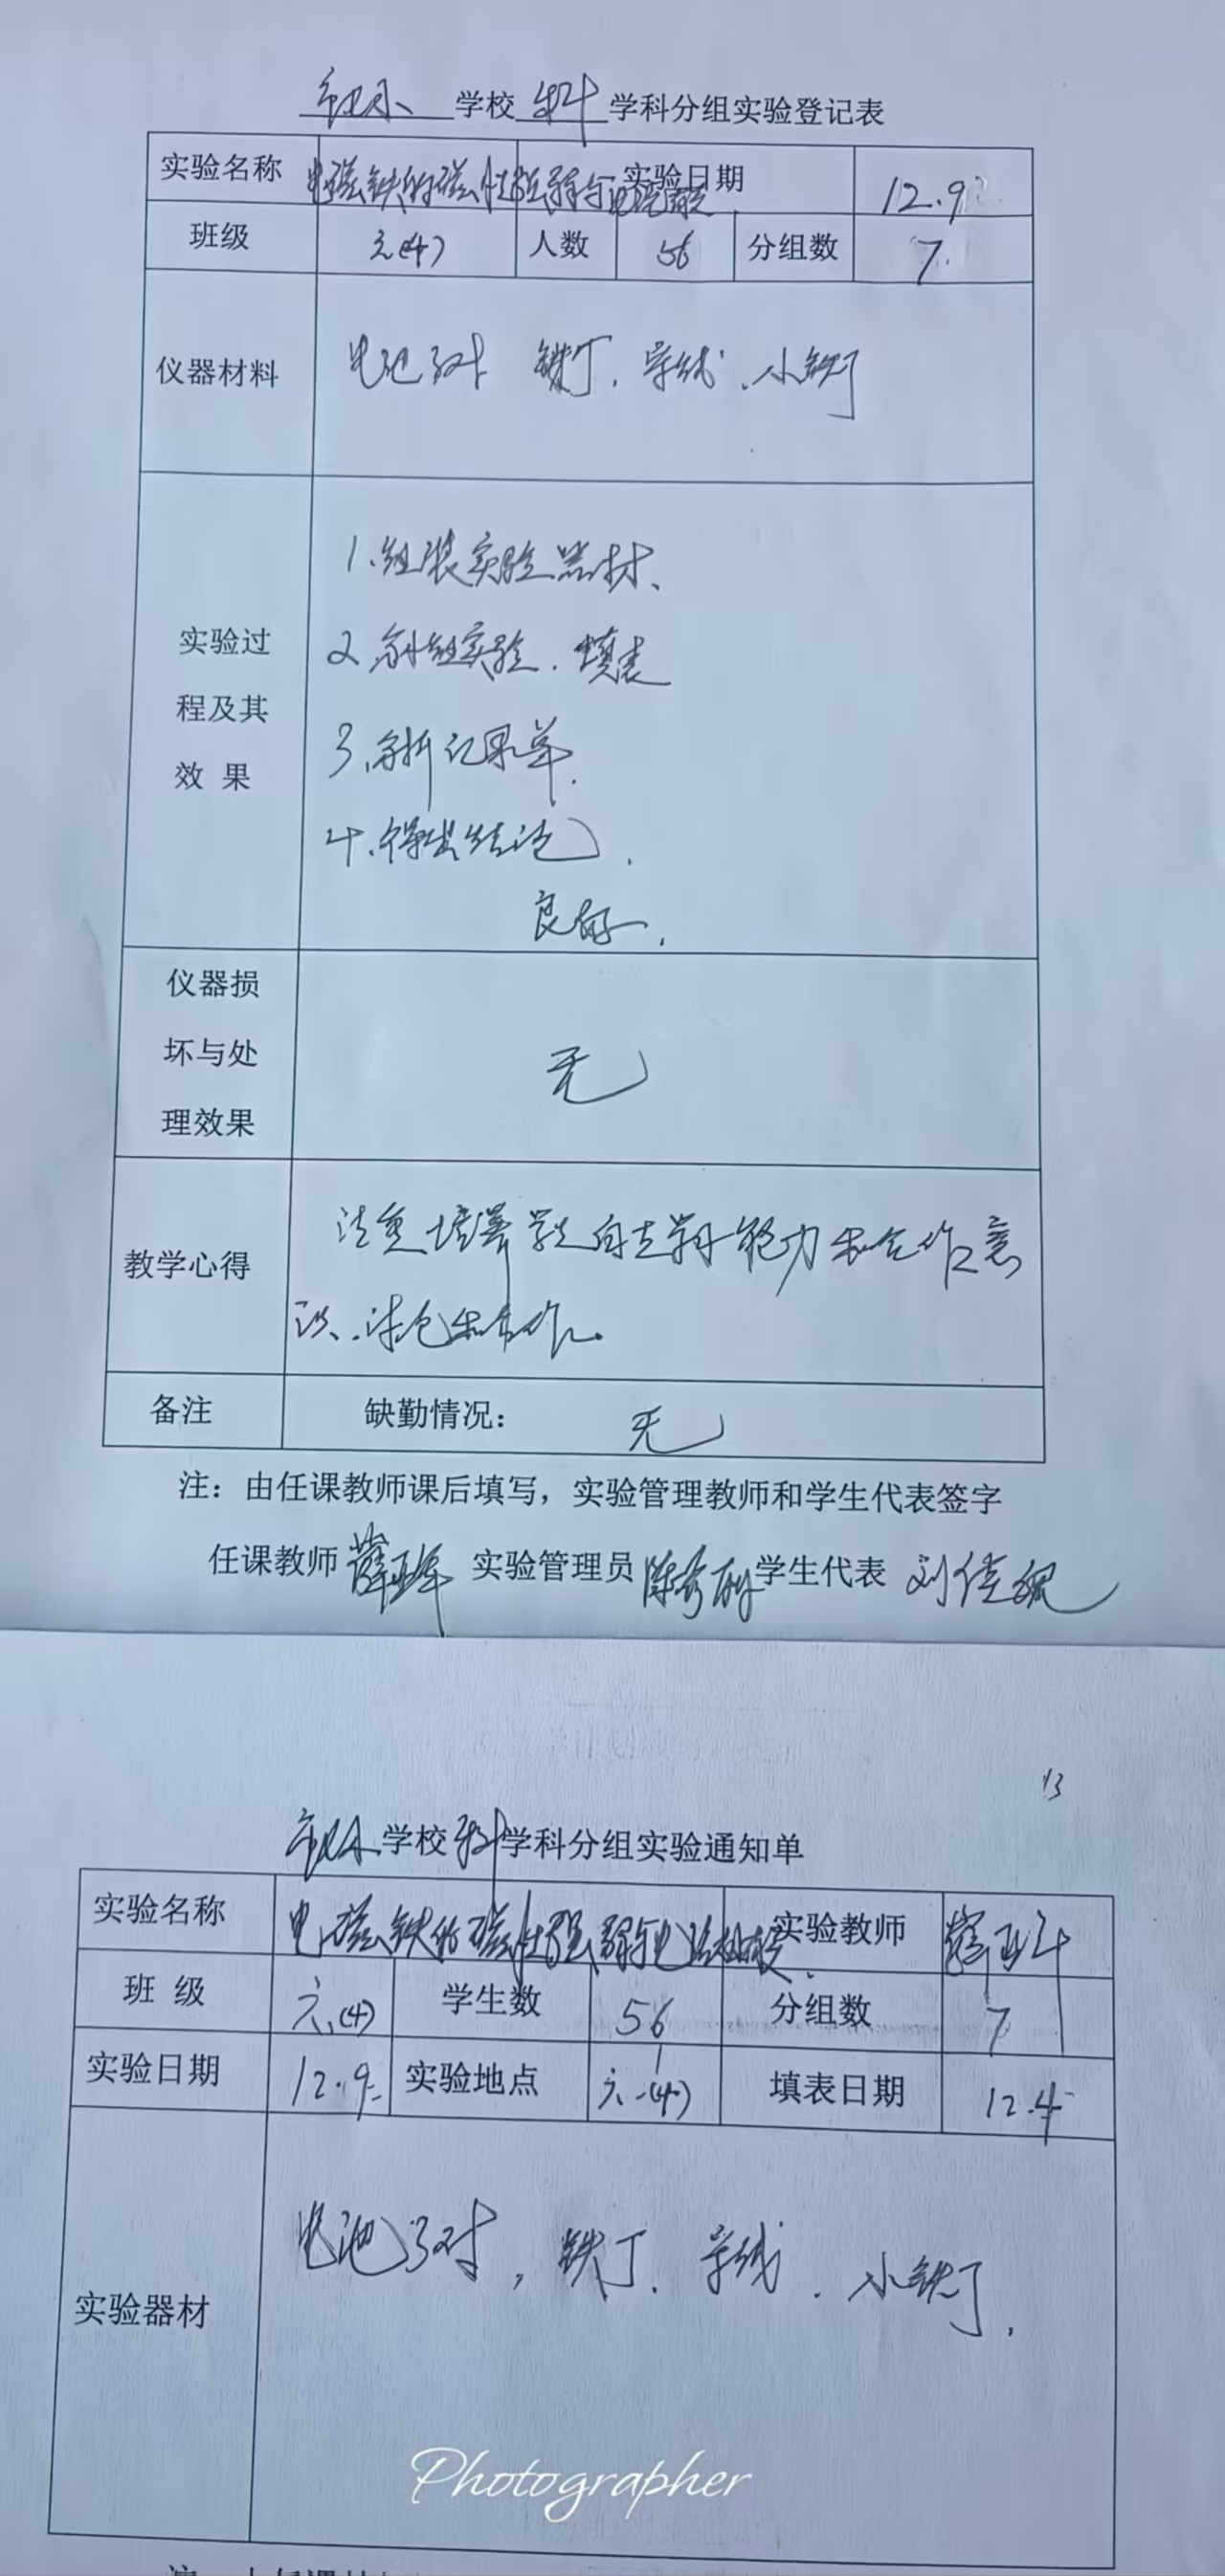 学校 科 学科分组实验登记表
实验名称 电磁铁的磁性强弱与电流 实验日期 12.9
班级 六(4) 人数 56 分组数 7
仪器材料 电池3对 铁丁、导线、小铁丁
1、组装实验器材、
实验过 2、分组实验、填表
程及其 3、分析记录单、
效 果 4、得出结论、
良好、
仪器损
坏与处 无
理效果
教学心得 注重培养学生自主学习能力和合作意
识、
备注 缺勤情况： 无
注：由任课教师课后填写，实验管理教师和学生代表签字
任课教师 薛 实验管理员 陈 学生代表 刘佳
13
学校 科 学科分组实验通知单
实验名称 电磁铁的磁性强弱与电 实验教师 薛
班 级 六(4) 学生数 56 分组数 7
实验日期 12.9 实验地点 六(4) 填表日期 12.4
实验器材 电池3对，铁丁、导线、小铁丁、
Photographer